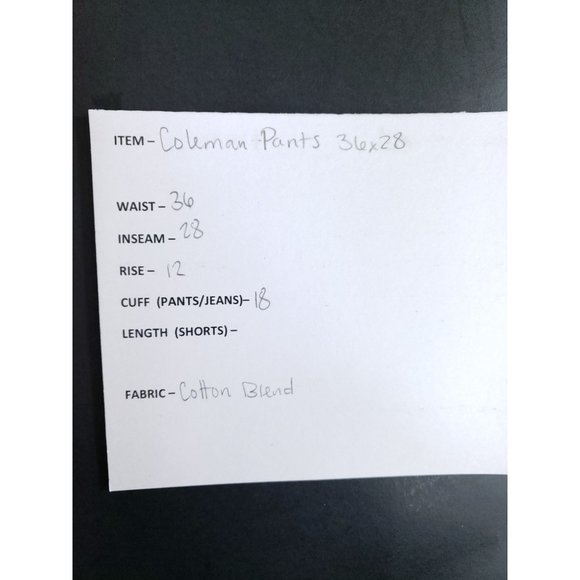 ITEM – Coleman Pants 36x28
WAIST – 36
INSEAM – 28
RISE – 12
CUFF (PANTS/JEANS)– 18
LENGTH (SHORTS) –
FABRIC – Cotton Blend